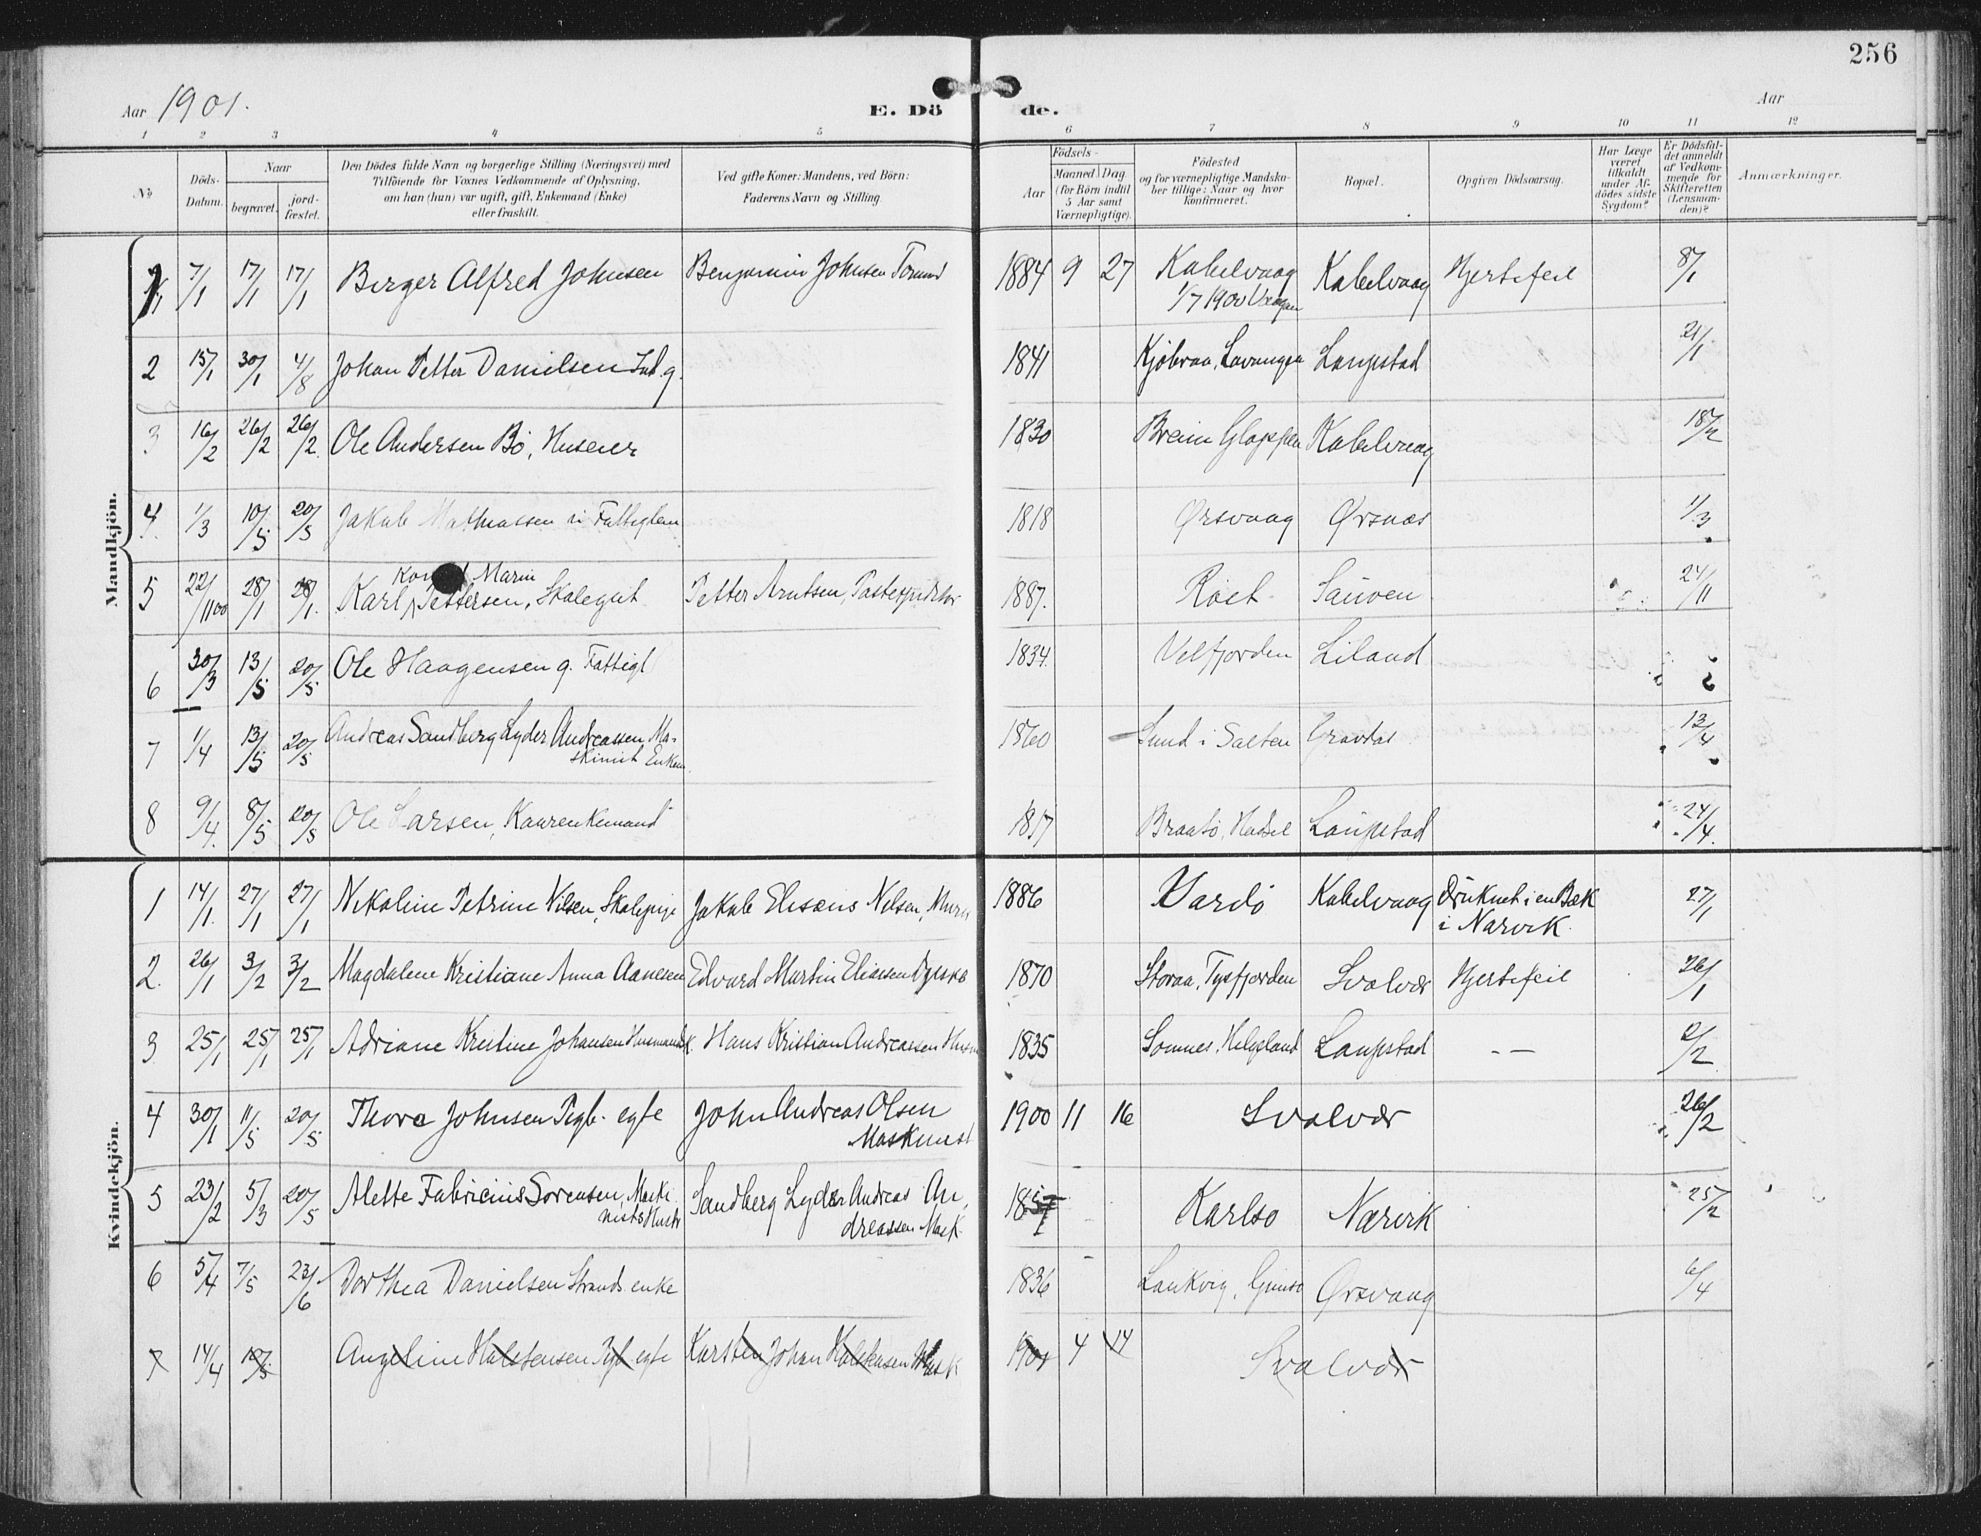 256
Aar 1901.
E. Dö de.
Aar
1 2 3 4 5 6 7 8 9 10 11 12
No
Döds-Datum.
Naar
begravet.
jord-fæstet.
Den Dödes fulde Navn og borgerlige Stilling (Næringsvei) med
Tilföiende for Voxnes Vedkommende af Oplysning,
om han (hun) var ugift, gift, Enkemand (Enke)
eller fraskilt.
Ved gifte Koner: Mandens, ved Börn:
Faderens Navn og Stilling
Födsels-
Aar
Maaned.
Dag
(for Börn indtil
5 Aar samt
Værnepligtige).
Födested
og for værnepligtige Mandska-
ber tillige: Naar og hvor
konfirmeret.
Bopæl.
Opgiven Dödsaarsag.
Har Læge
været
tilkaldt
under Af-
dödes sidste
Sygdom?
Er Dödsfal-
det anmeldt
af Vedkom-
mende for
Skifteretten
(Lensman-
den)?
Anmærkninger.
Mandkjön.
1 7/1 17/1 17/1 Birger Alfred Johnsen Benjamin Johnsen 1884 9 27 Kabelvaag Kabelvaag Hjertefeil 8/1
1/7 1900 Vaagan
2 15/1 30/1 4/8 Johan Petter Danielsen Ind. g. 1841 Lavangen Laupstad 21/1
3 16/2 26/2 26/2. Ole Andersen Bö, Huseier 1830 Breim Kabelvaag 18/2
4. 1/3 10/5 20/5 Jakob Mathiassen Fattiglem 1818 Ørsvaag Ørsnæs 1/3
Marin
5 22/11 00 28/1 28/1. Karl Pettersen, Skolegut Petter Arntsen, 1887. Röst Sauöen 24/11
6 30/3 13/5 20/5 Ole Haagensen g. Fattigl 1834. Velfjorden Liland
7 1/4 13/5 20/5 Andreas Sandberg Lyder Andreassen Ma-
skinist Enkem. 1860 Sund i Salten Gravdal 13/4
8 9/4. 8/5 20/5 Ole Larsen, Kaarenkemand 1817 Hadsel Laupstad 24/4.
Kvindekjön.
1 14/1. 27/1 27/1 Nikoline Petrine Nilsen, Skolepige Jakob Eliseus Nilsen, Murer 1886 Vardö Kabelvaag Druknet i en Bæk
i Narvik. 27/1
2. 26/1 3/2 3/2 Magdalene Kristiane Anna Aanesen Edvard Martin Eliassen 1870 Storaa, Tysfjorden Svolvær Hjertefeil 26/1
3 25/1 25/1 25/1 Adriane Kristine Johansen Husmandsk. Hans Kristian Andreassen Husm 1835 Sømnes, Helgeland Laupstad – – 2/2
4 30/1 11/5 20/5 Thora Johnsen Pigb. egte John Andreas Olsen
Maskinist 1900 11 16 Svolvær 26/2
5 23/2 5/3 20/5 Alette Fabricius Sørensen, Maski-
nists Hustr Sandberg Lyder Andreas An-
dreassen Mask. Karlsö Narvik 25/2
6 5/4 7/5 23/6 Dorthea Danielsen Strands.enke 1836 Laukvig, Gimsö Ørsvaag 6/4
7 14/4 Angeline Halstensen Pgb egte Karsten Johan Halstensen Mask 1901 4 14 Svolvær